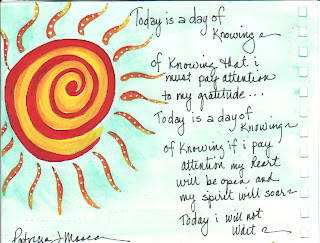 Today is a day of
Knowing
of Knowing that i
must pay attention
to my gratitude...
Today is a day of
Knowing
of Knowing if i pay
attention my heart
will be open and
my spirit will soar
Today i will not
Wait
Patricia J Mosca